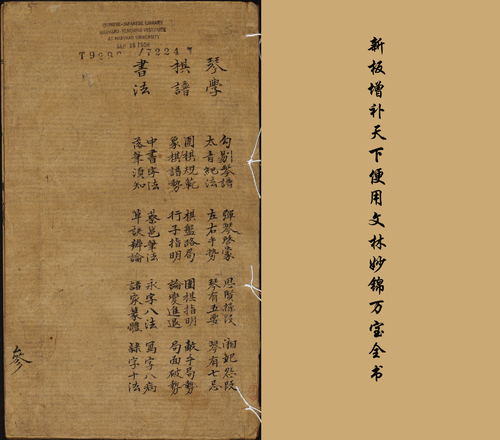 新板增补天下便用文林妙锦万宝全书
CHINESE-JAPANESE LIBRARY
HARVARD-YENCHING INSTITUTE
AT HARVARD UNIVERSITY
琴學
勾剔琴譜 湘妃怨段
太音紀法 左右手勢 琴有五要 琴有七忌
棋譜
圍棋規範 棋盤路局 圍棋指明 敵手局勢
象棋譜勢 行子指明 論變進退 局面破勢
書法
中書字法 蔡邕筆法 永字八法 寫字八病
落筆須知 草訣辨論 諸家篆體 隸字十法
參